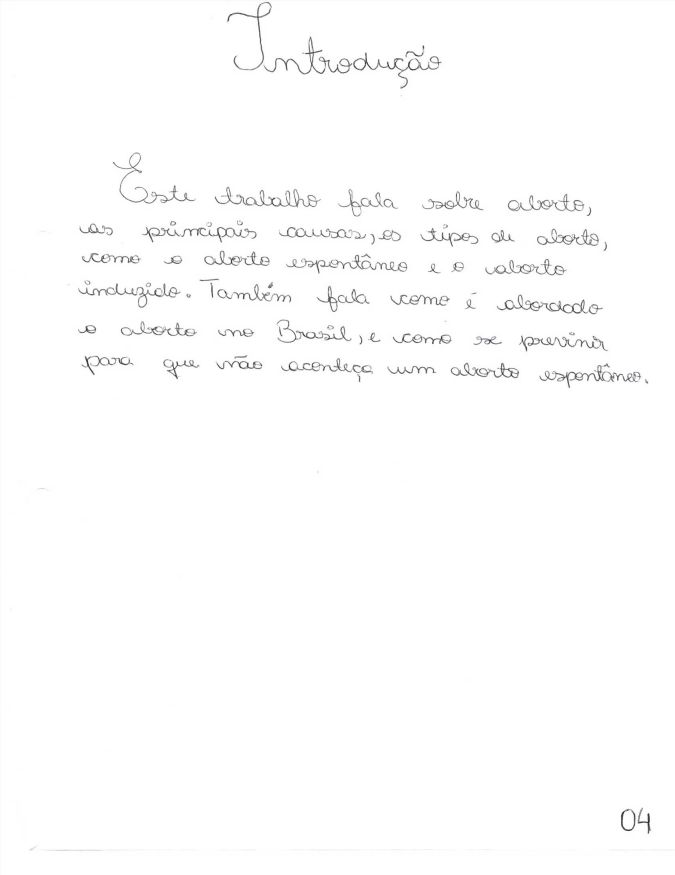 Introdução
Este trabalho fala sobre aborto,
as principais causas, os tipos de aborto,
como o aborto espontâneo e o aborto
induzido. Também fala como é abordado
o aborto no Brasil, e como se previnir
para que não aconteça um aborto espontâneo.
04